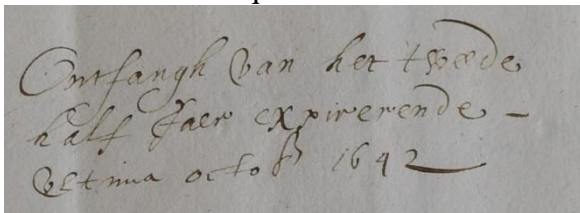 Ontfangh van het tweede
half Jaer expirerende –
ultima octob 1642